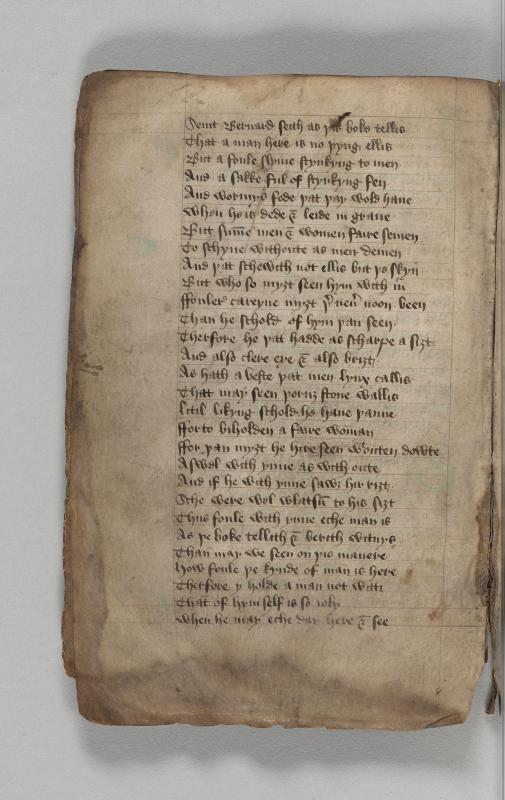 Seint Bernard seith as þis boke tellis
That a man here is no þyng ellis
But a foule slyme stynkyng to men
And a sakke ful of stynkyng fen
And wormys fode þat þay wold haue
When he is dede & leide in graue
But sum̄e men & women faire semen
To schyne withoute as men demen
And þat schewith not ellis but þe skyn
But who so myȝt seen hym with in
ffouler careyne myȝt þ̄ neū noon been
Than he schold of hym þan seen
Therfore he þat hadde as scharpe a siȝt
And also clere eye & also briȝt
As hath a beste þat men lynx callis
That may seen þoruȝ stone wallis
litil likyng schold he haue þanne
fforto biholden a faire woman
ffor þan myȝt he hire seen w̄outen dowte
Aswel with ynne as with oute
And if he with ynne sawȝ hir riȝt
Sche were wel wlatsū to his siȝt
Thus foule with ynne eche man is
As þe boke tellith & berith witnys
Than may we seen on þis manere
how foule þe kynde of man is here
Therfore y holde a man not witti
That of hym self is so ioly
When he may eche day here & see